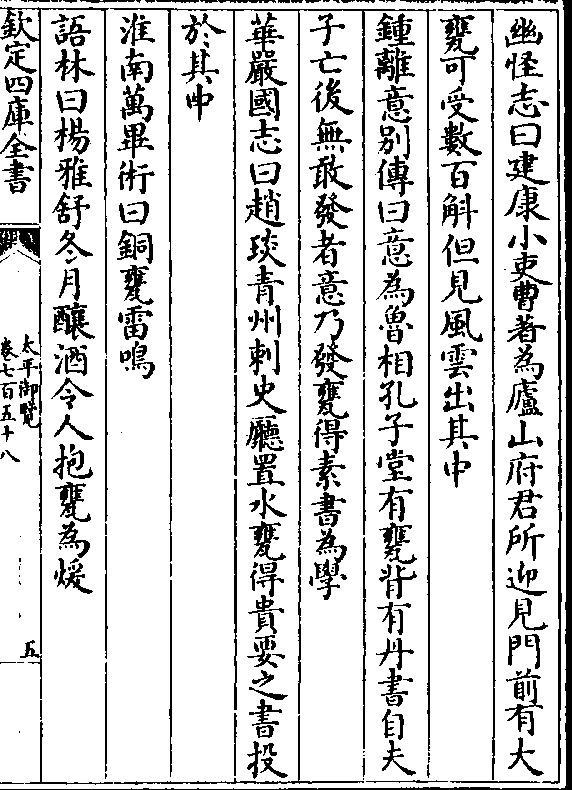 幽怪志曰建康小吏曹著為廬山府君所迎見門前有大
甕可受數百斛但見風雲出其中
鍾離意别傳曰意為魯相孔子堂有甕背有丹書自夫
子亡後無敢發者意乃發甕得素書為學
華嚴國志曰趙琰青州刺史廳置水甕得貴要之書投
於其中
淮南萬畢術曰銅甕雷鳴
語林曰楊雅舒冬月釀酒令人抱甕為煖
欽定四庫全書
太平御覽
卷七百五十八
五